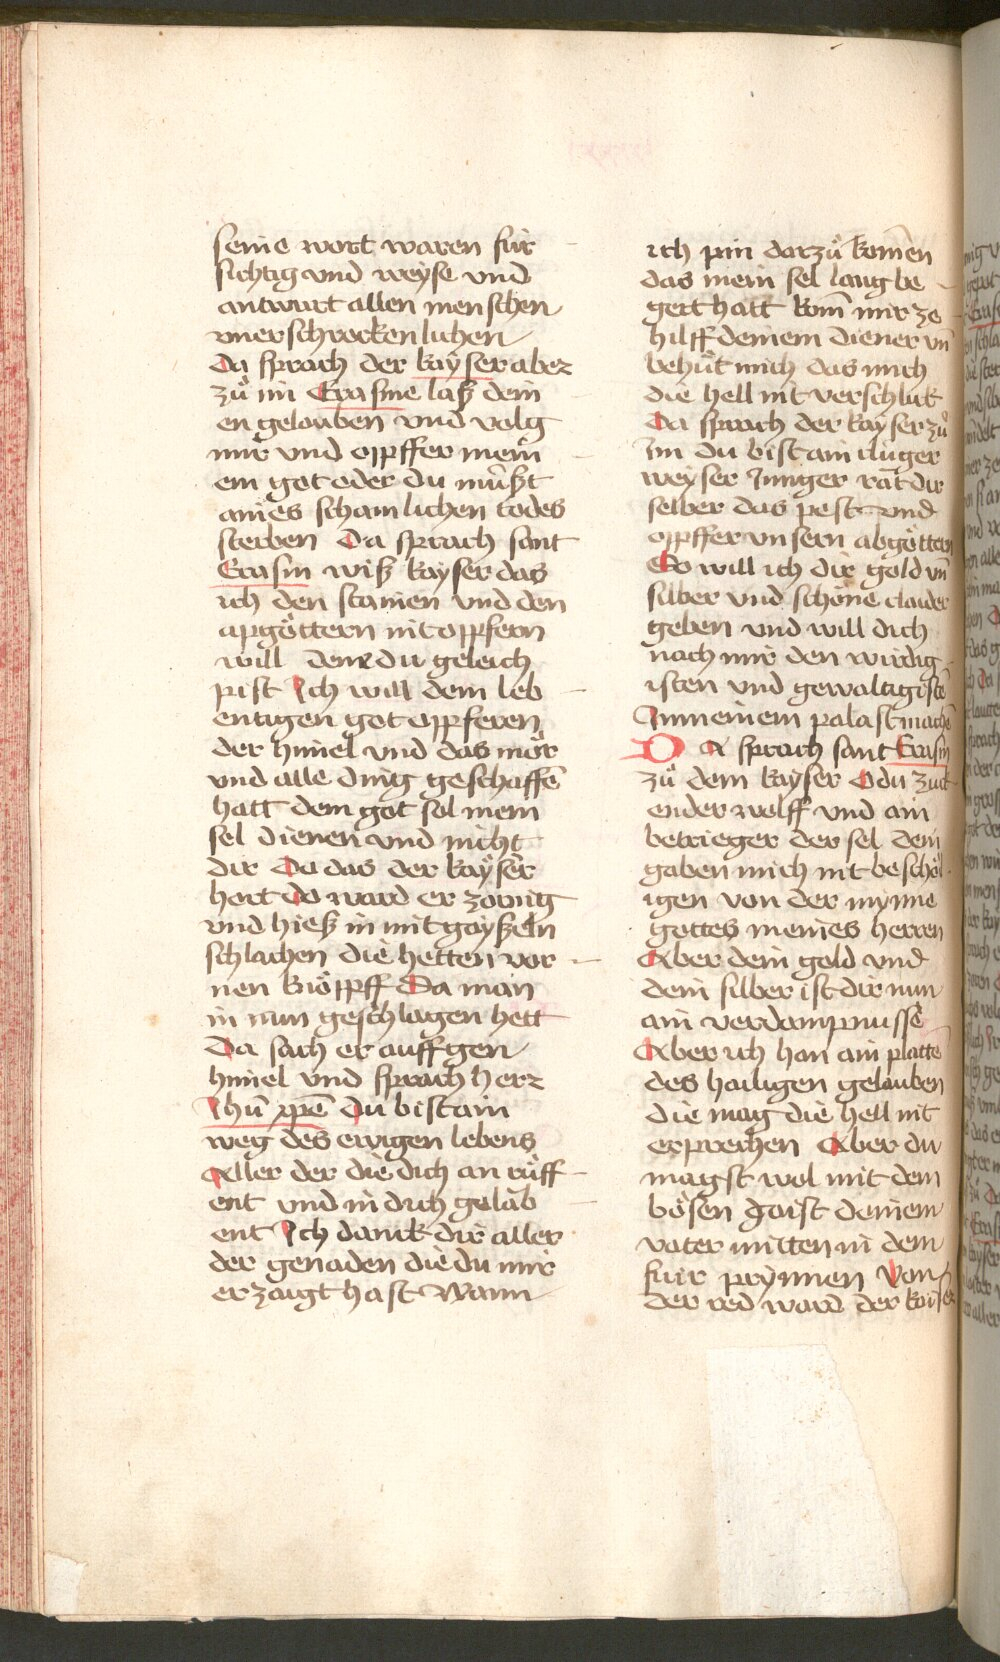 seine wort waren für
sichtig vnd weyse vnd
antwurt allen menschen
vnerschrockenlichen
Da sprach der kayser aber
zů im Erasme laß dein
en gelouben vnd volg
mir vnd opffer mein
em got oder du můßt
aines schamlichen todes
sterben Da sprach sant
Erasm wiß kayser das
ich den stainen vnd den
apgöttern nit opfern
will dem du geleich
pist Ich will dem leb
entigen got opfferen
der himel vnd das mör
vnd alle ding geschaffē
hatt dem got sol mein
sel dienen vnd nicht
dir Da das der kayser
hort do ward er zornig
vnd hieß in mit gayßeln
schlachen die hetten vor
nen knöpff Da man
in nun geschlagen hett
Da sach er auff gen
himel vnd sprach herz
Ihū xpē Du bist ain
weg des ewigen lebens
Aller der die dich an rüff
ent vnd in dich gelab
ent Ich danck dir aller
der genaden die du mir
erzaigt hast Wann
ich pin darzů komen
das mein sel lang be
gert hatt kom̄ mir ze
hilff deinem diener vn̄
behůt mich das mich
die hell nit verschlick
Da sprach der kayser zů
Im du bist ain cluger
weyser Junger rat dir
selber das pest vnd
opffer vnsern abgöttern
So will ich dir gold vn̄
silber vnd schöne claider
geben vnd will dich
nach mir den wirdig
isten vnd gewaltigistē
In meinem palast machē
Da sprach sant Erasm
zů dem kayser O du zuck
ender wolff vnd ain
betrieger der sel dein
gaben mich nit beschöl
igen von der mynne
gottes meines herren
Aber dein gold vnd
dein silber ist dir nun
ain verdampnusse
Aber ich han ain platte
des hailigen gelauben
die mag die hell nit
erprechen Aber du
magst wol mit dem
bösen gaist deinem
vater mitten in dem
fuir prynnen Von
der red ward der kaiser